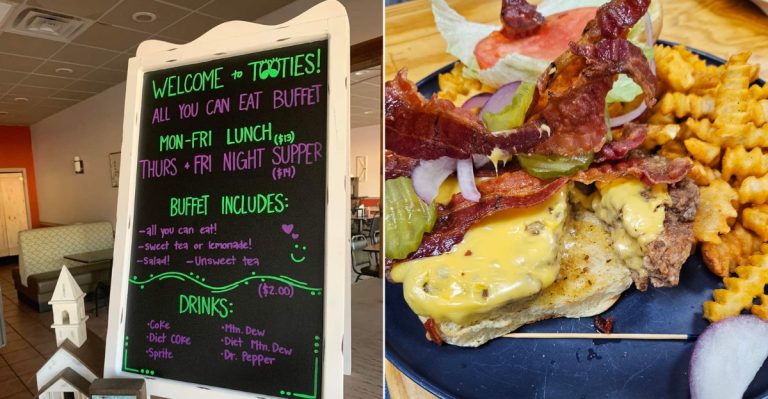 WELCOME to TOOTIES!
ALL YOU CAN EAT BUFFET
MON-FRI LUNCH ($13)
THURS + FRI NIGHT SUPPER
($14)
BUFFET INCLUDES:
-all you can eat!
-sweet tea or lemonade!
-Salad! -Unsweet tea
($2.00)
DRINKS:
·Coke ·Mtn. Dew
·Diet COKE ·Diet Mtn. Dew
·Sprite ·Dr. Pepper